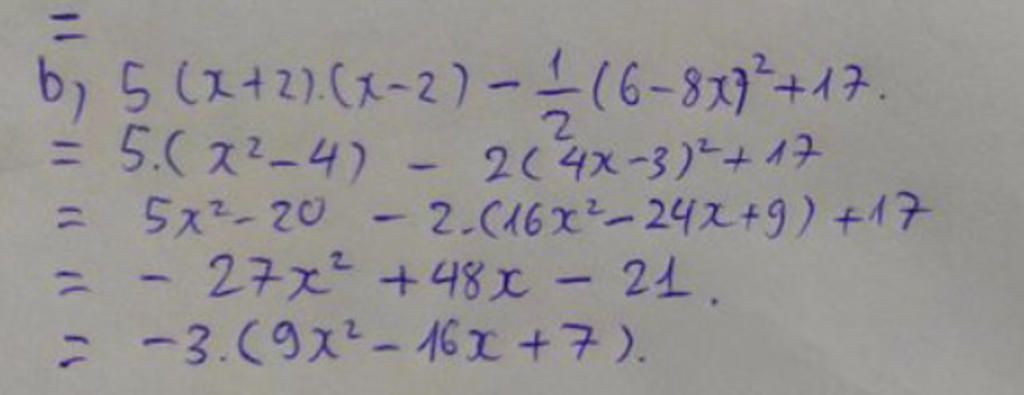 =
b, 5 (x+2).(x-2) - 1/2 (6-8x)² +17.
= 5.(x²-4) - 2(4x-3)² +17
= 5x²-20 - 2.(16x²-24x+9) +17
= - 27x² +48x - 21.
= -3.(9x²-16x+7).